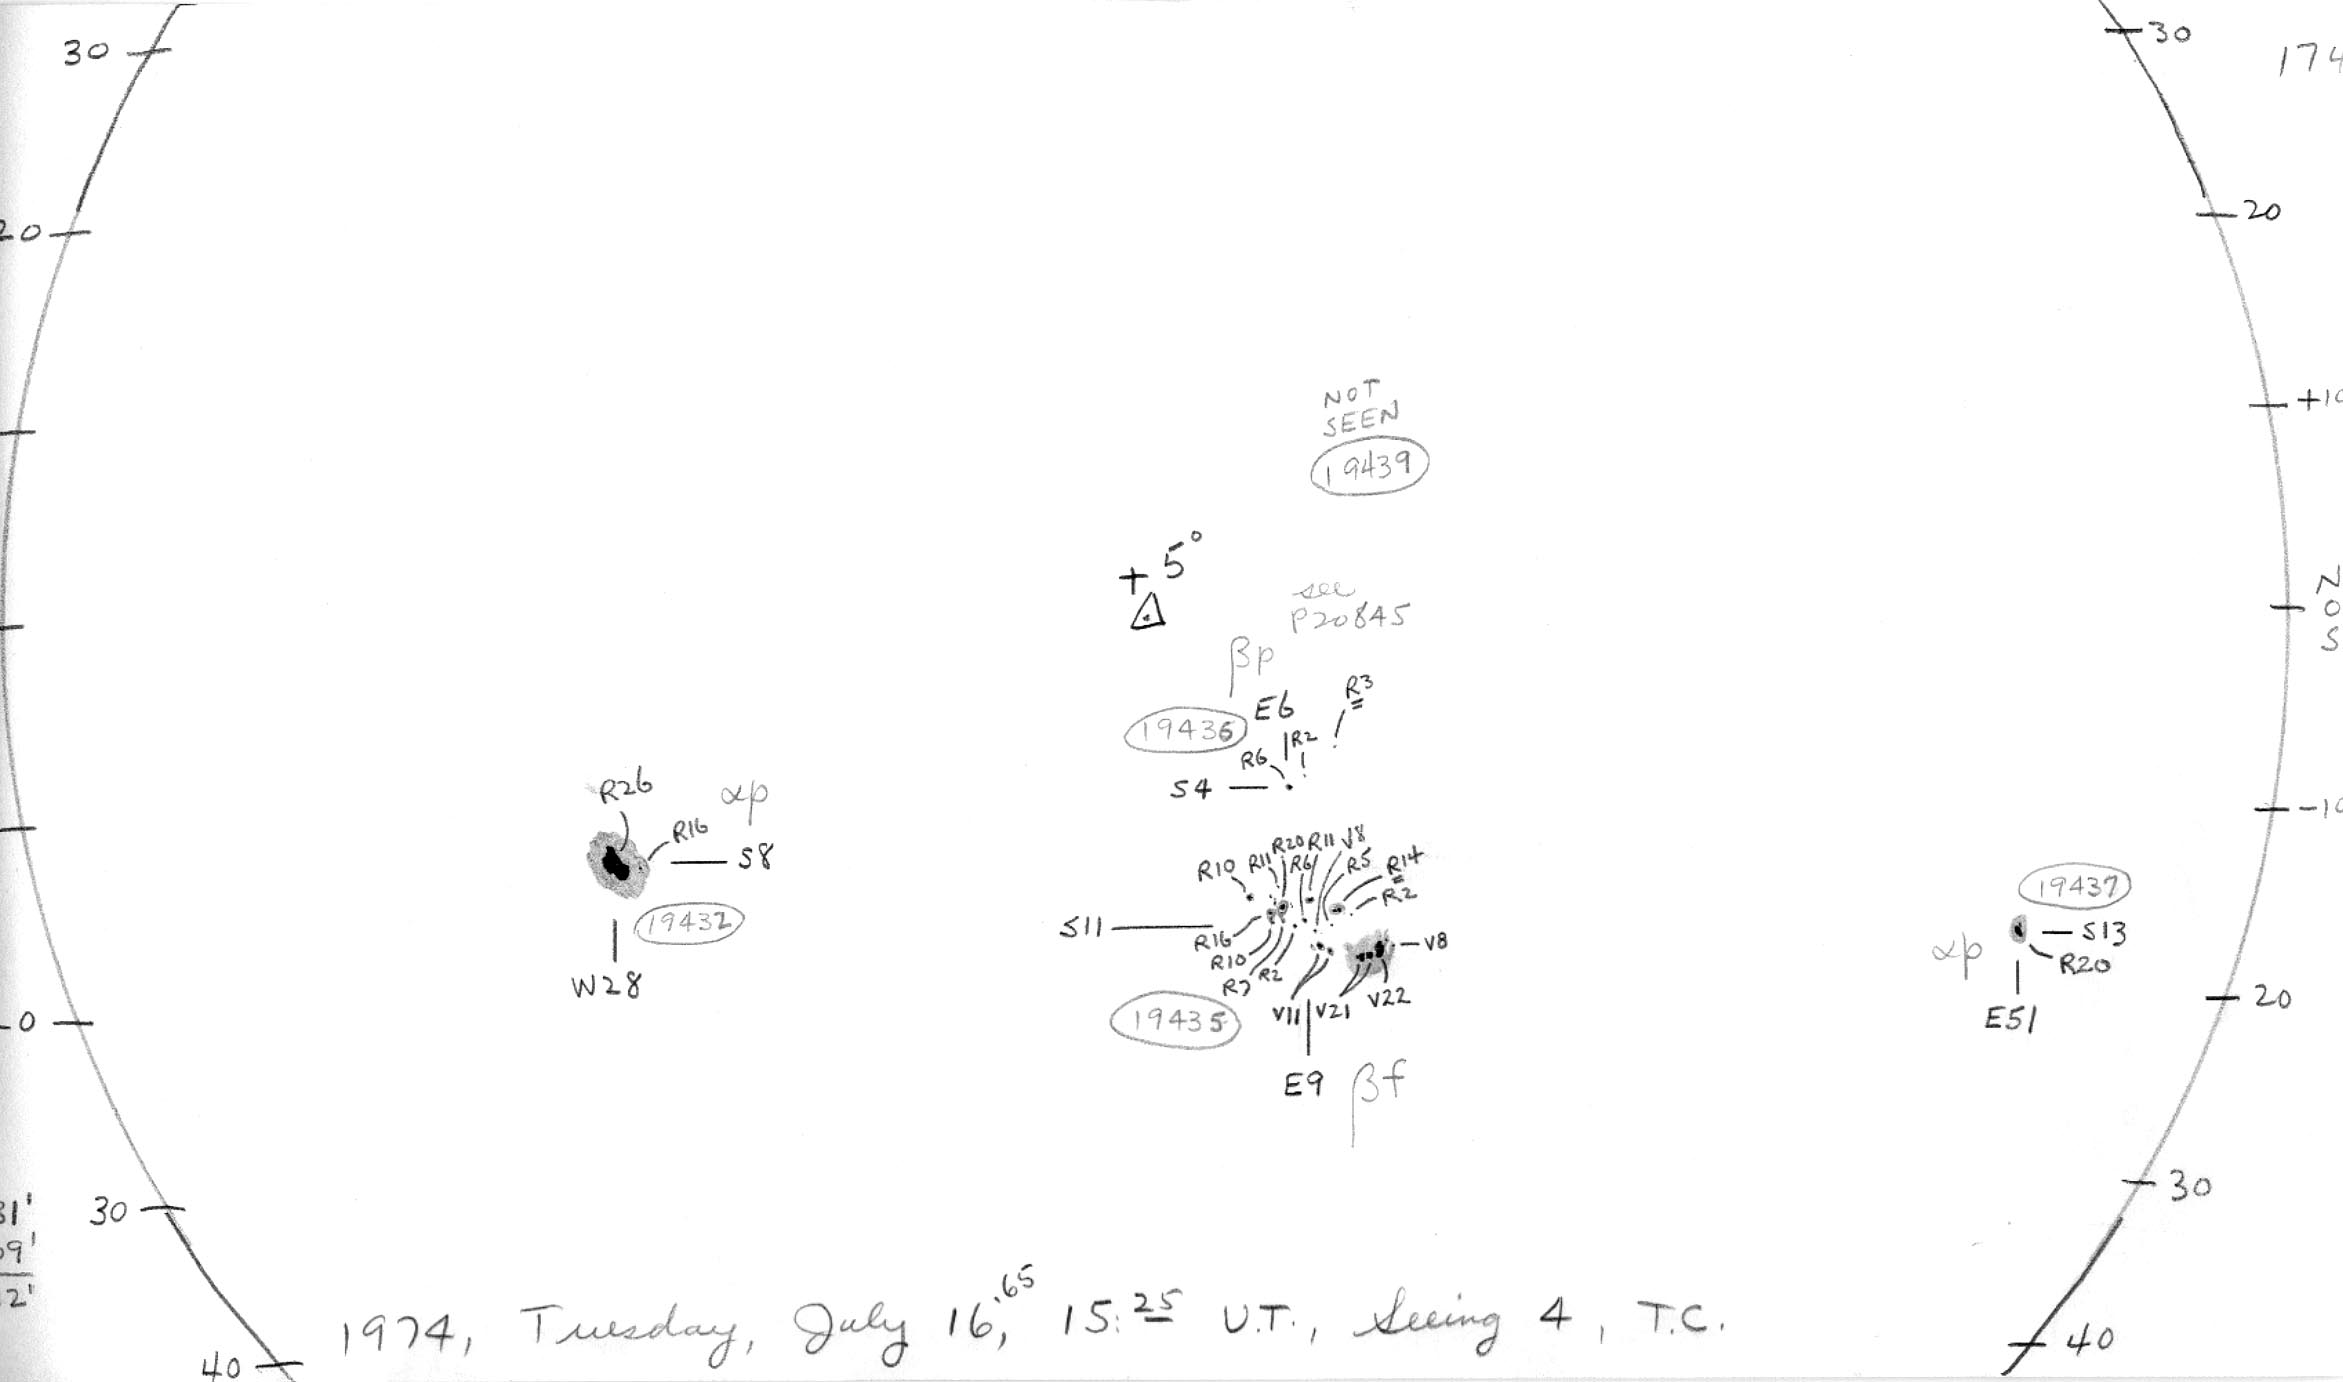 30
30
174
20
20
+10
NOT
SEEN
19439
+5°
see
P20845
N
0
S
βp
19436
E6
R3
R2
R6
S4
-10
R26
αp
R16
S8
19432
W28
R20 R11 V8
R10 R11 R6 R5 R14
R2
S11
R16
R10
R7 R2
V8
V11 V21 V22
19435
E9
βf
19437
S13
αp
R20
E51
0
20
30
30
31'
09'
2'
1974, Tuesday, July 16,.65 15:25 U.T., Seeing 4, T.C.
40
40